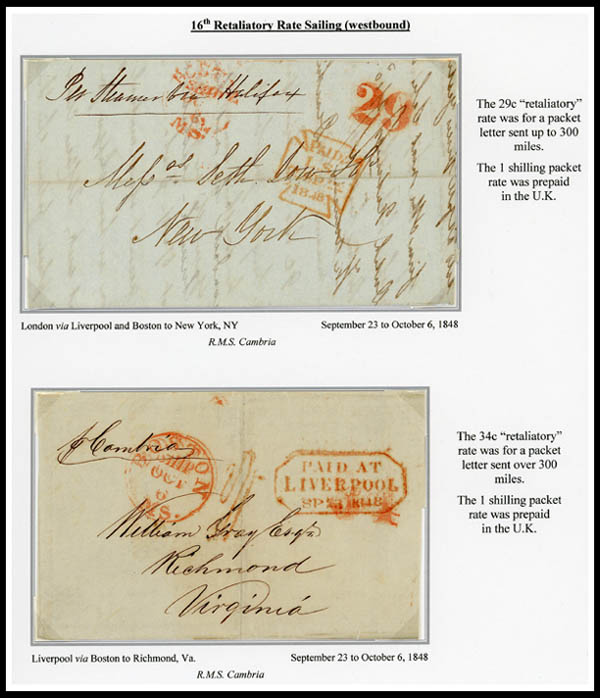 16th Retaliatory Rate Sailing (westbound)
Per Steamer via Halifax
29
PAID
1848
Messrs Seth Low & Co
New York
The 29c “retaliatory”
rate was for a packet
letter sent up to 300
miles.
The 1 shilling packet
rate was prepaid
in the U.K.
London via Liverpool and Boston to New York, NY
September 23 to October 6, 1848
R.M.S. Cambria
p Cambria
BOSTON
SHIP
OCT
6
MS.
PAID AT
LIVERPOOL
William Gray Esqr
Richmond
Virginia
The 34c “retaliatory”
rate was for a packet
letter sent over 300
miles.
The 1 shilling packet
rate was prepaid
in the U.K.
Liverpool via Boston to Richmond, Va.
September 23 to October 6, 1848
R.M.S. Cambria